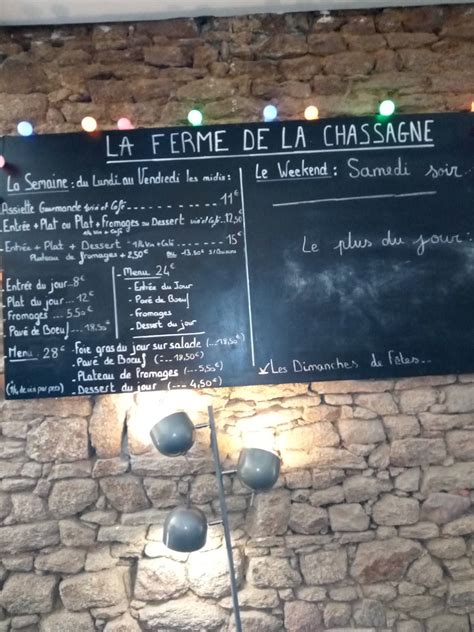 LA FERME DE LA CHASSAGNE
La Semaine : du Lundi au Vendredi les midis :
Assiette Gourmande 11€
- Entrée + Plat ou Plat + Fromages ou Dessert 12,50
- Entrée + Plat + Dessert 15€
Plateau de fromages + 2,50€ ou - 13,50€
- Entrée du jour 8€
Plat du jour ... 12€
Fromages .... 5,50€
Pavé de Boeuf ... 18,50€
- Menu 24€
- Entrée du Jour
- Pavé de Boeuf
- Fromages
- Dessert du jour
Menu : 28€
(1/4 de vin par pers)
- Foie gras du jour sur salade
- Pavé de Boeuf (--- 18,50€)
- Plateau de Fromages (--- 5,50€)
- Dessert du jour (--- 4,50€)
Le Weekend : Samedi soir...
Le plus du jour :
Les Dimanches de Fêtes..